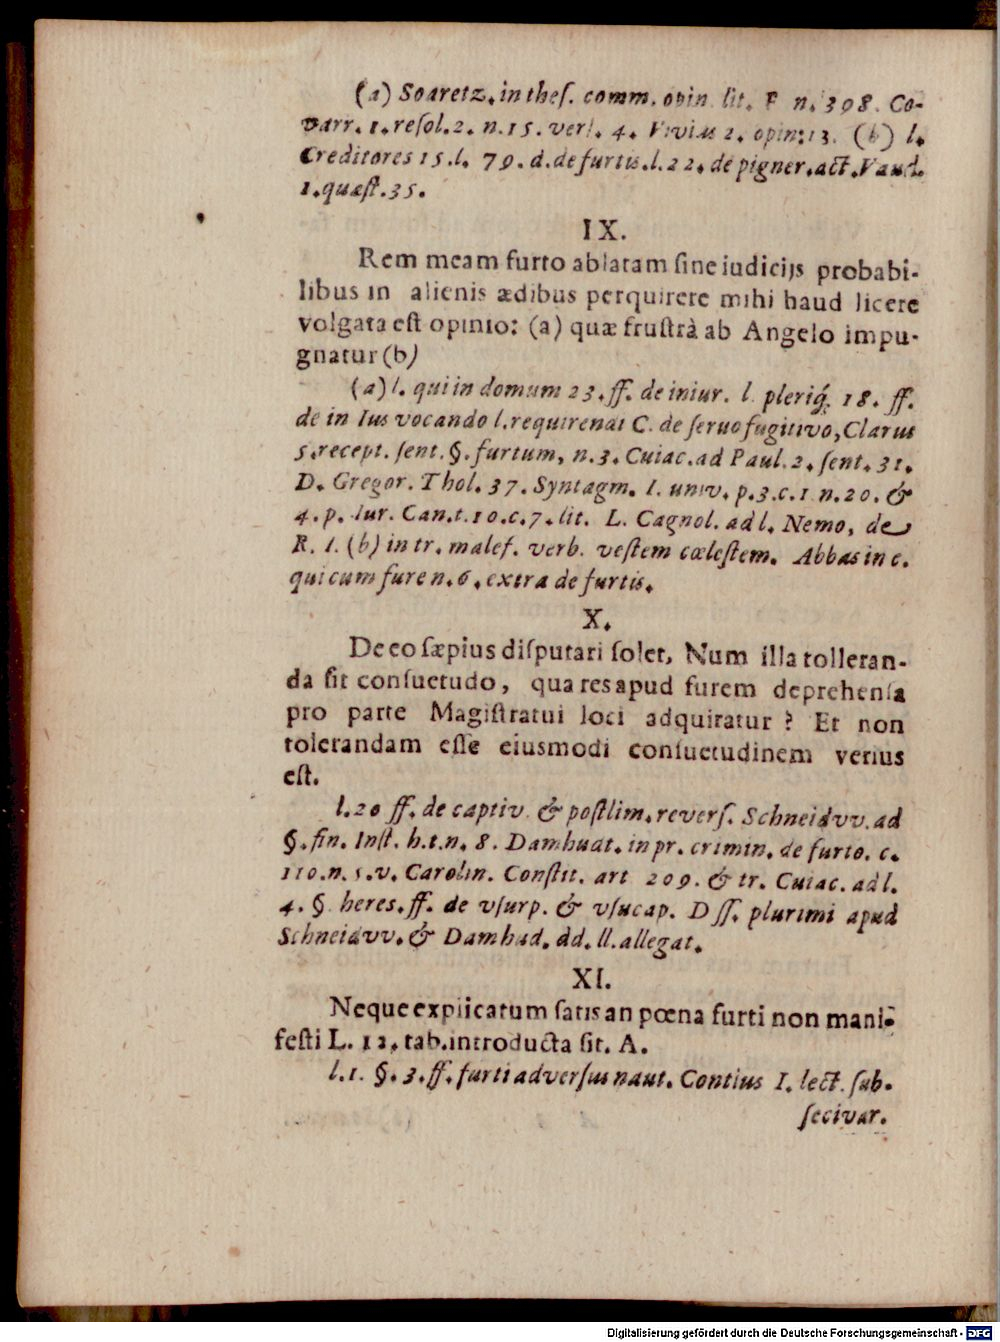 (a) Soaretz. in theſ. comm. opin. lit. F n. 398. Co-
varr. 1. reſol. 2. n. 15. verſ. 4. Vivius 2. opin: 13. (b) l.
Creditores 15. l. 79. d. de furtis. l. 22. de pigner. act. Vaud.
1. quæſt. 35.
IX.
Rem meam furto ablatam ſine iudicijs probabi-
libus in alienis ædibus perquirere mihi haud licere
volgata eſt opinio: (a) quæ fruſtrà ab Angelo impu-
gnatur (b)
(a) l. qui in domum 23. ff. de iniur. l. pleriq́. 18. ff.
de in Ius vocando l. requirendi C. de ſeruo fugitivo, Clarus
5. recept. ſent. §. furtum, n. 3. Cuiac. ad Paul. 2. ſent. 31.
D. Gregor. Thol. 37. Syntagm. I. univ. p. 3. c. 1 n. 20. &
4. p. Iur. Can. t. 10. c. 7. lit. L. Cagnol. ad l. Nemo, de
R. I. (b) in tr. malef. verb. veſtem cœleſtem. Abbas in c.
qui cum fure n. 6. extra de furtis.
X.
De eo ſæpius diſputari ſolet, Num illa tolleran-
da ſit conſuetudo, qua res apud furem deprehenſa
pro parte Magiſtratui loci adquiratur? Et non
tolerandam eſſe eiusmodi conſuetudinem verius
eſt.
l. 20 ff. de captiv. & poſtlim. reverſ. Schneidvv. ad
§. fin. Inſt. h. t. n. 8. Damhudt. in pr. crimin. de furto. c.
110. n. 5. v. Carolin. Conſtit. art 209. & tr. Cuiac. ad l.
4. §. heres. ff. de vſurp. & vſucap. Dſſ. plurimi apud
Schneidvv. & Damhud. dd. ll. allegat.
XI.
Neque explicatum ſatis an pœna furti non mani-
feſti L. 12. tab. introducta ſit. A.
l. 1. §. 3. ff. furti adverſus naut. Contius I. lect. ſub-
ſecivar.
Digitalisierung gefördert durch die Deutsche Forschungsgemeinschaft - DFG